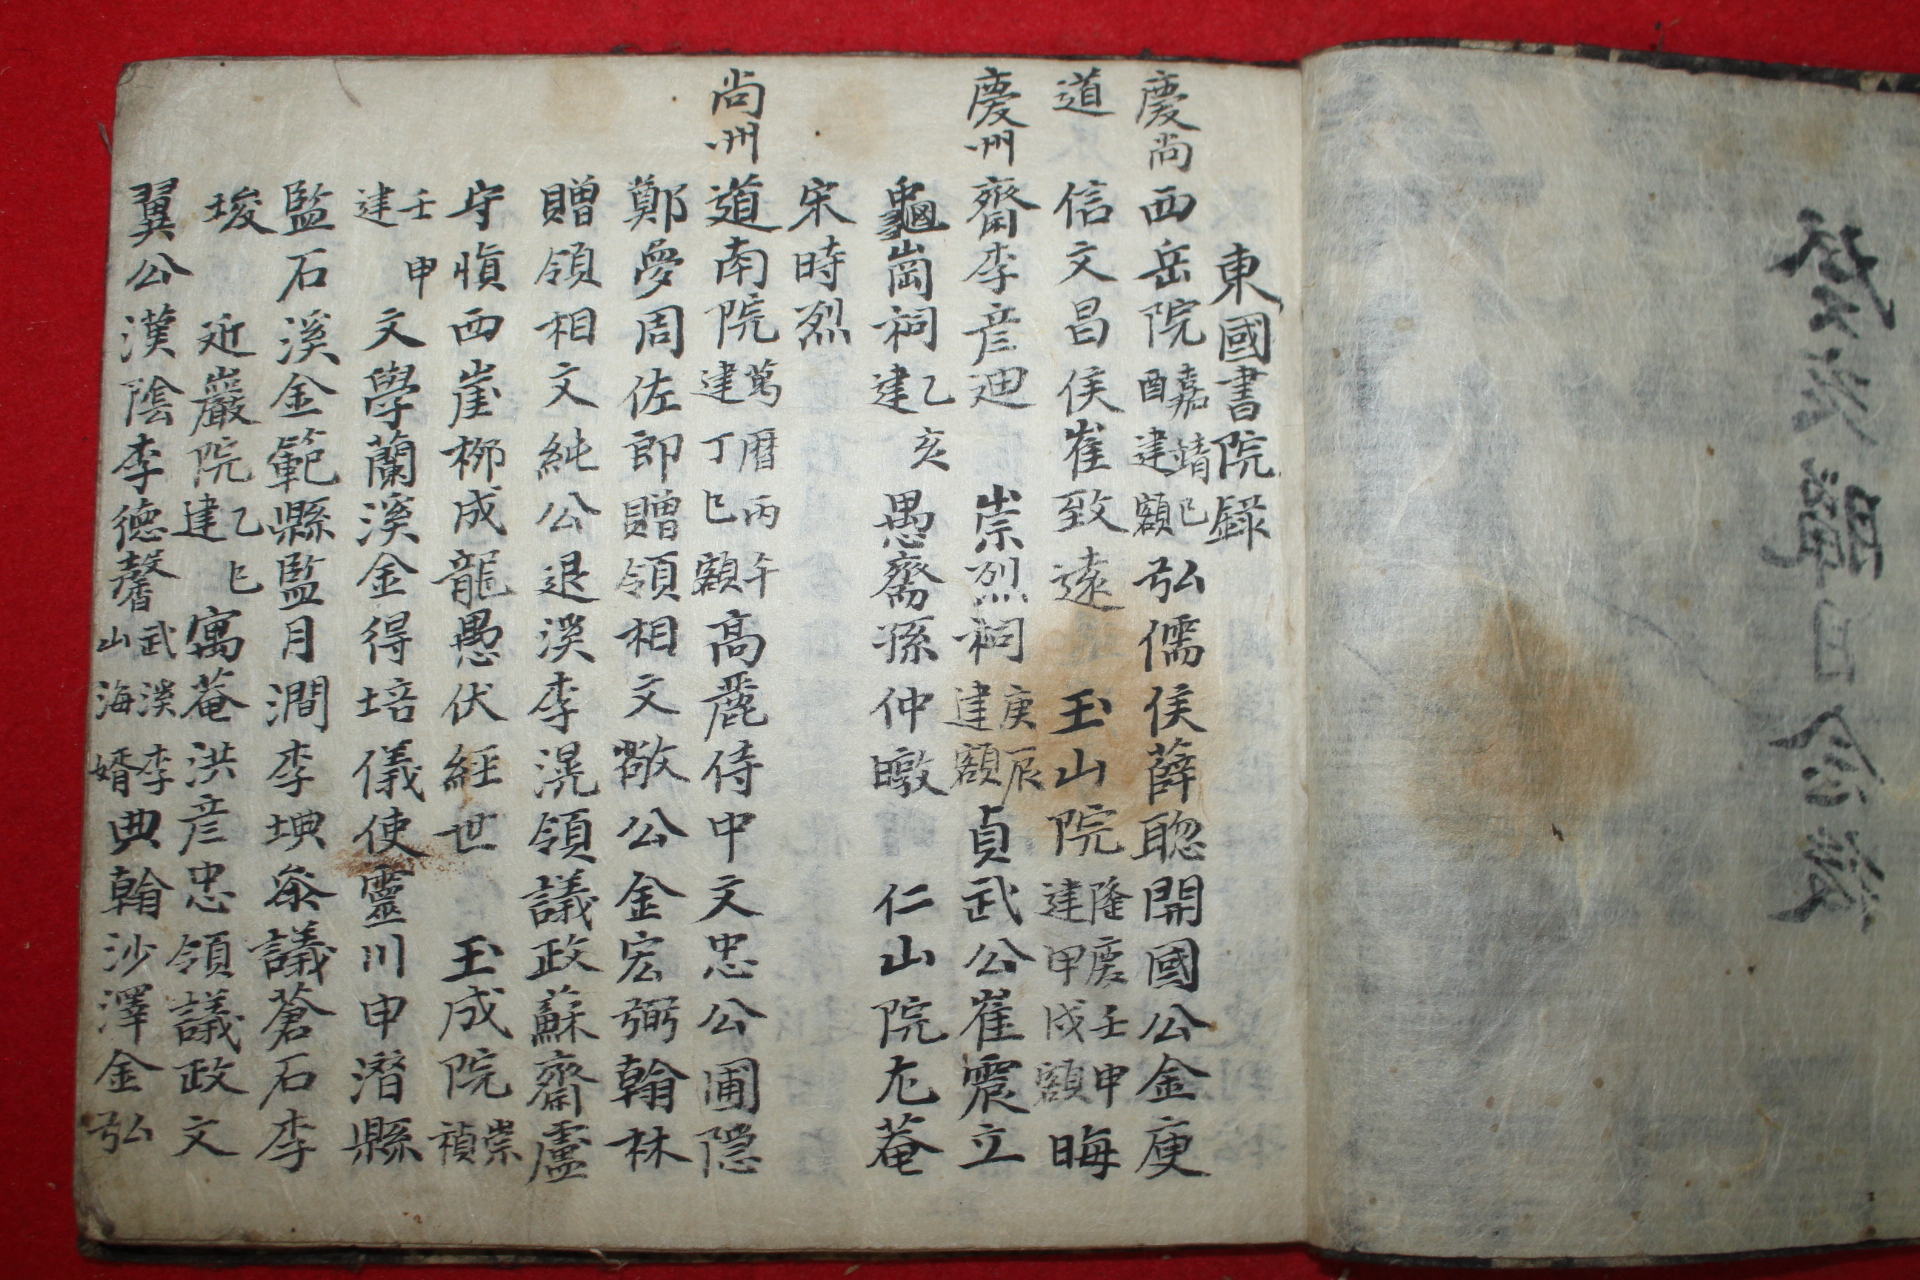 東國書院錄
慶尚西岳院嘉靖酉建巳額弘儒侯薛聰開國公金庾
道信文昌侯崔致遠 玉山院隆慶壬申建甲戌額晦
慶州齋李彦迪 崇烈祠庚辰建額貞武公崔震立
龜崗祠乙亥建愚齋孫仲暾 仁山院尤菴
宋時烈
尚州道南院萬曆丙午建丁巳額高麗侍中文忠公圃隱
鄭夢周佐郎贈領相文敬公金宏弼翰林
贈領相文純公退溪李滉領議政蘇齋盧
守愼西崖柳成龍愚伏經世 玉成院崇禎
壬申建文學蘭溪金得培儀使靈川申潛縣
監石溪金範縣監月澗李㙉叅議蒼石李
埈 近巖院乙巳建寓菴洪彦忠領議政文
翼公漢陰李德馨武溪李山海婿典翰沙澤金弘